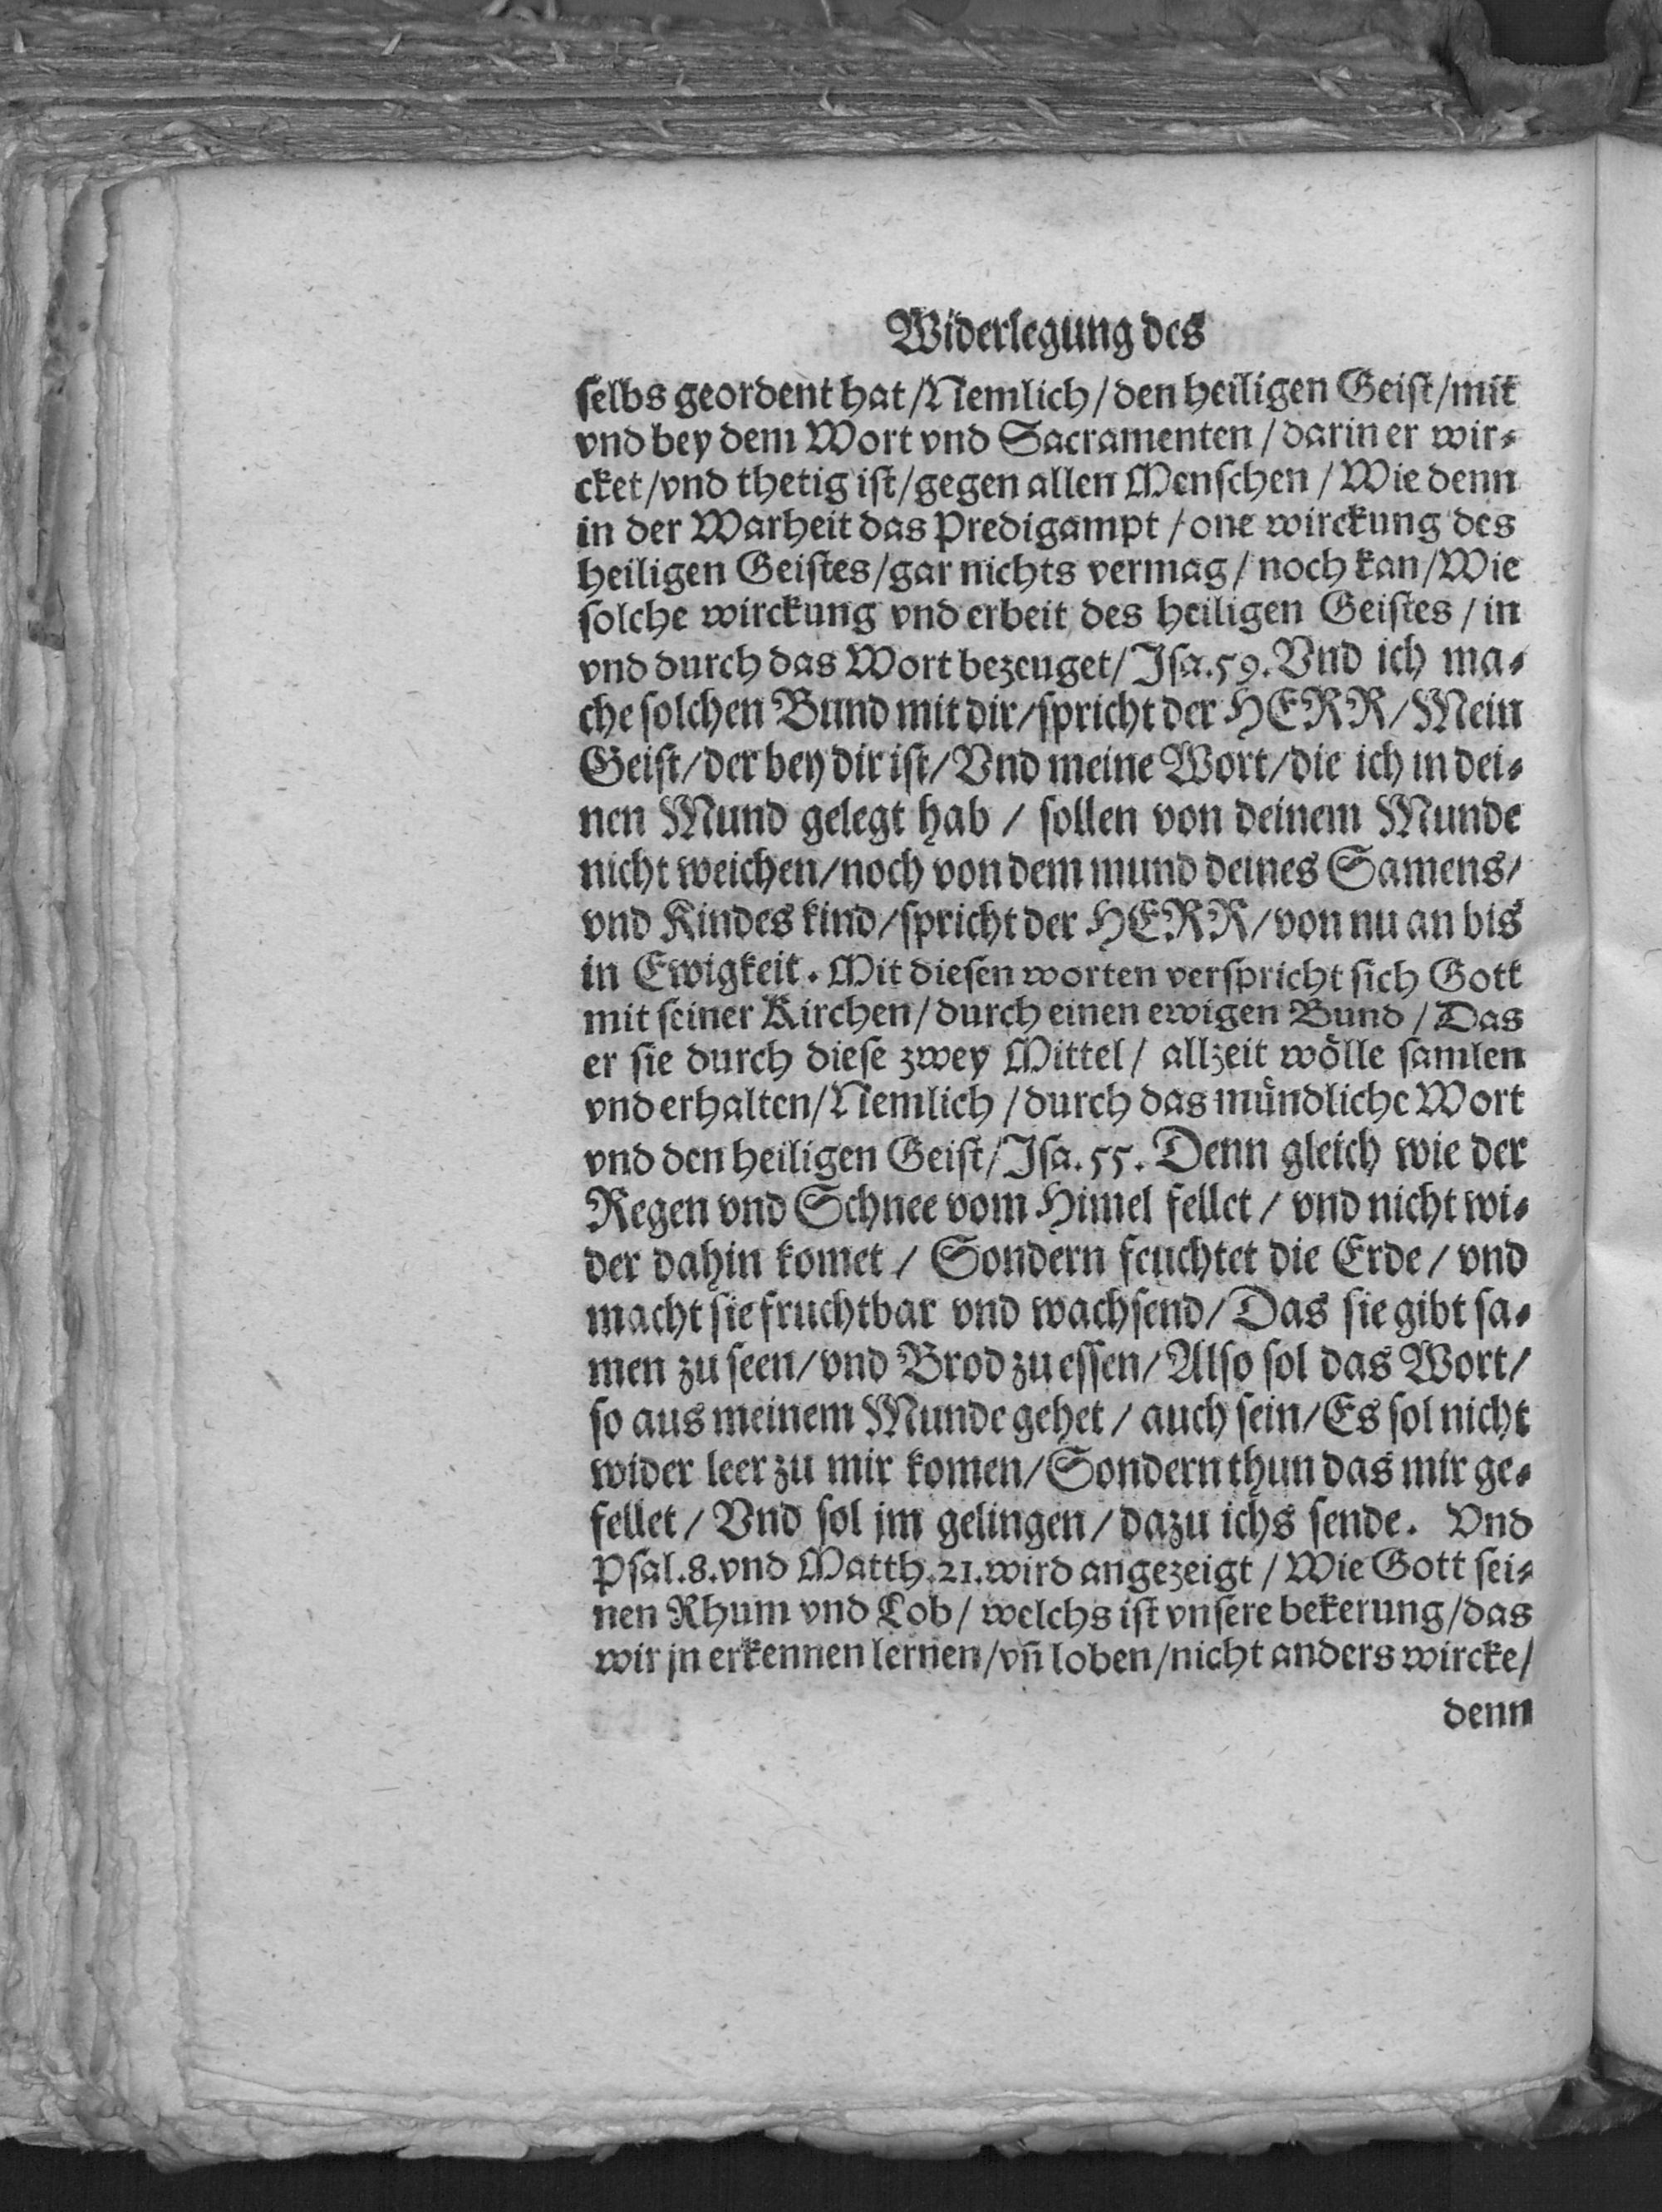 Widerlegung des
ſelbs geordent hat/Nemlich/den heiligen Geiſt/mit
vnd bey dem Wort vnd Sacramenten/darin er wir⸗
cket/vnd thetig iſt/gegen allen Menſchen/Wie denn
in der Warheit das Predigampt/one wirckung des
heiligen Geiſtes/gar nichts vermag/noch kan/Wie
ſolche wirckung vnd erbeit des heiligen Geiſtes/in
vnd durch das Wort bezeuget/Jſa.59.Vnd ich ma⸗
che ſolchen Bund mit dir/ſpricht der HERR/Mein
Geiſt/der bey dir iſt/Vnd meine Wort/die ich in dei⸗
nen Mund gelegt hab/ſollen von deinem Munde
nicht weichen/noch von dem mund deines Samens/
vnd Kindes kind/ſpricht der HERR/von nu an bis
in Ewigkeit. Mit dieſen worten verſpricht ſich Gott
mit ſeiner Kirchen/durch einen ewigen Bund/Das
er ſie durch dieſe zwey Mittel/allzeit woͤlle ſamlen
vnd erhalten/Nemlich/durch das muͤndliche Wort
vnd den heiligen Geiſt/Jſa.55. Denn gleich wie der
Regen vnd Schnee vom Himel fellet/vnd nicht wi⸗
der dahin komet/Sondern feuchtet die Erde/vnd
macht ſie fruchtbar vnd wachſend/Das ſie gibt ſa⸗
men zu ſeen/vnd Brod zu eſſen/Alſo ſol das Wort/
ſo aus meinem Munde gehet/auch ſein/Es ſol nicht
wider leer zu mir komen/Sondern thun das mir ge⸗
fellet/Vnd ſol jm gelingen/dazu ichs ſende. Vnd
Pſal.8.vnd Matth.21.wird angezeigt/Wie Gott ſei⸗
nen Rhum vnd Lob/welchs iſt vnſere bekerung/das
wir jn erkennen lernen/vñ loben/nicht anders wircke/
denn